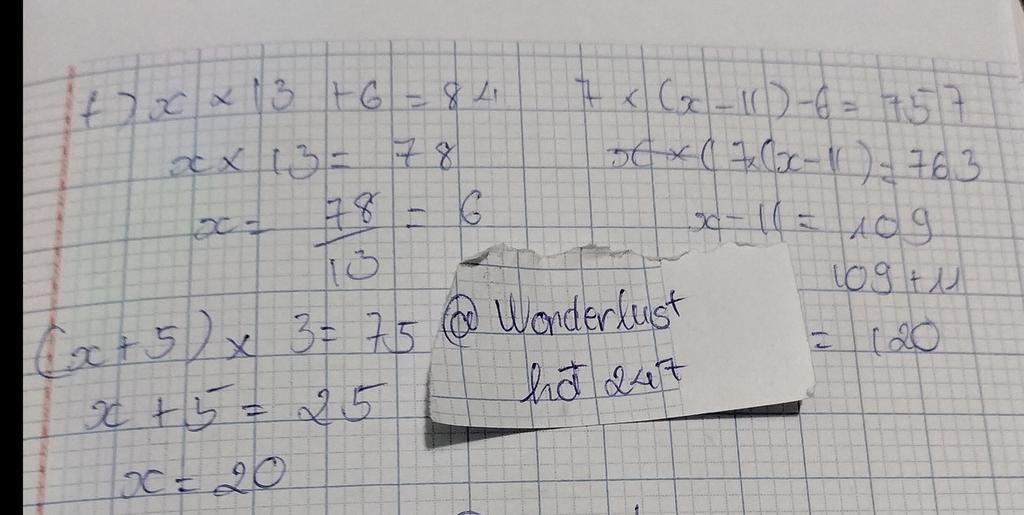 f) x × 13 + 6 = 84
x × 13 = 78
x = 78/13 = 6
(x + 5) × 3 = 75
x + 5 = 25
x = 20
7 × (x - 11) - 6 = 757
7 × (x - 11) = 763
x - 11 = 109
109 + 11
= 120
@ Wonderlust
hot 247